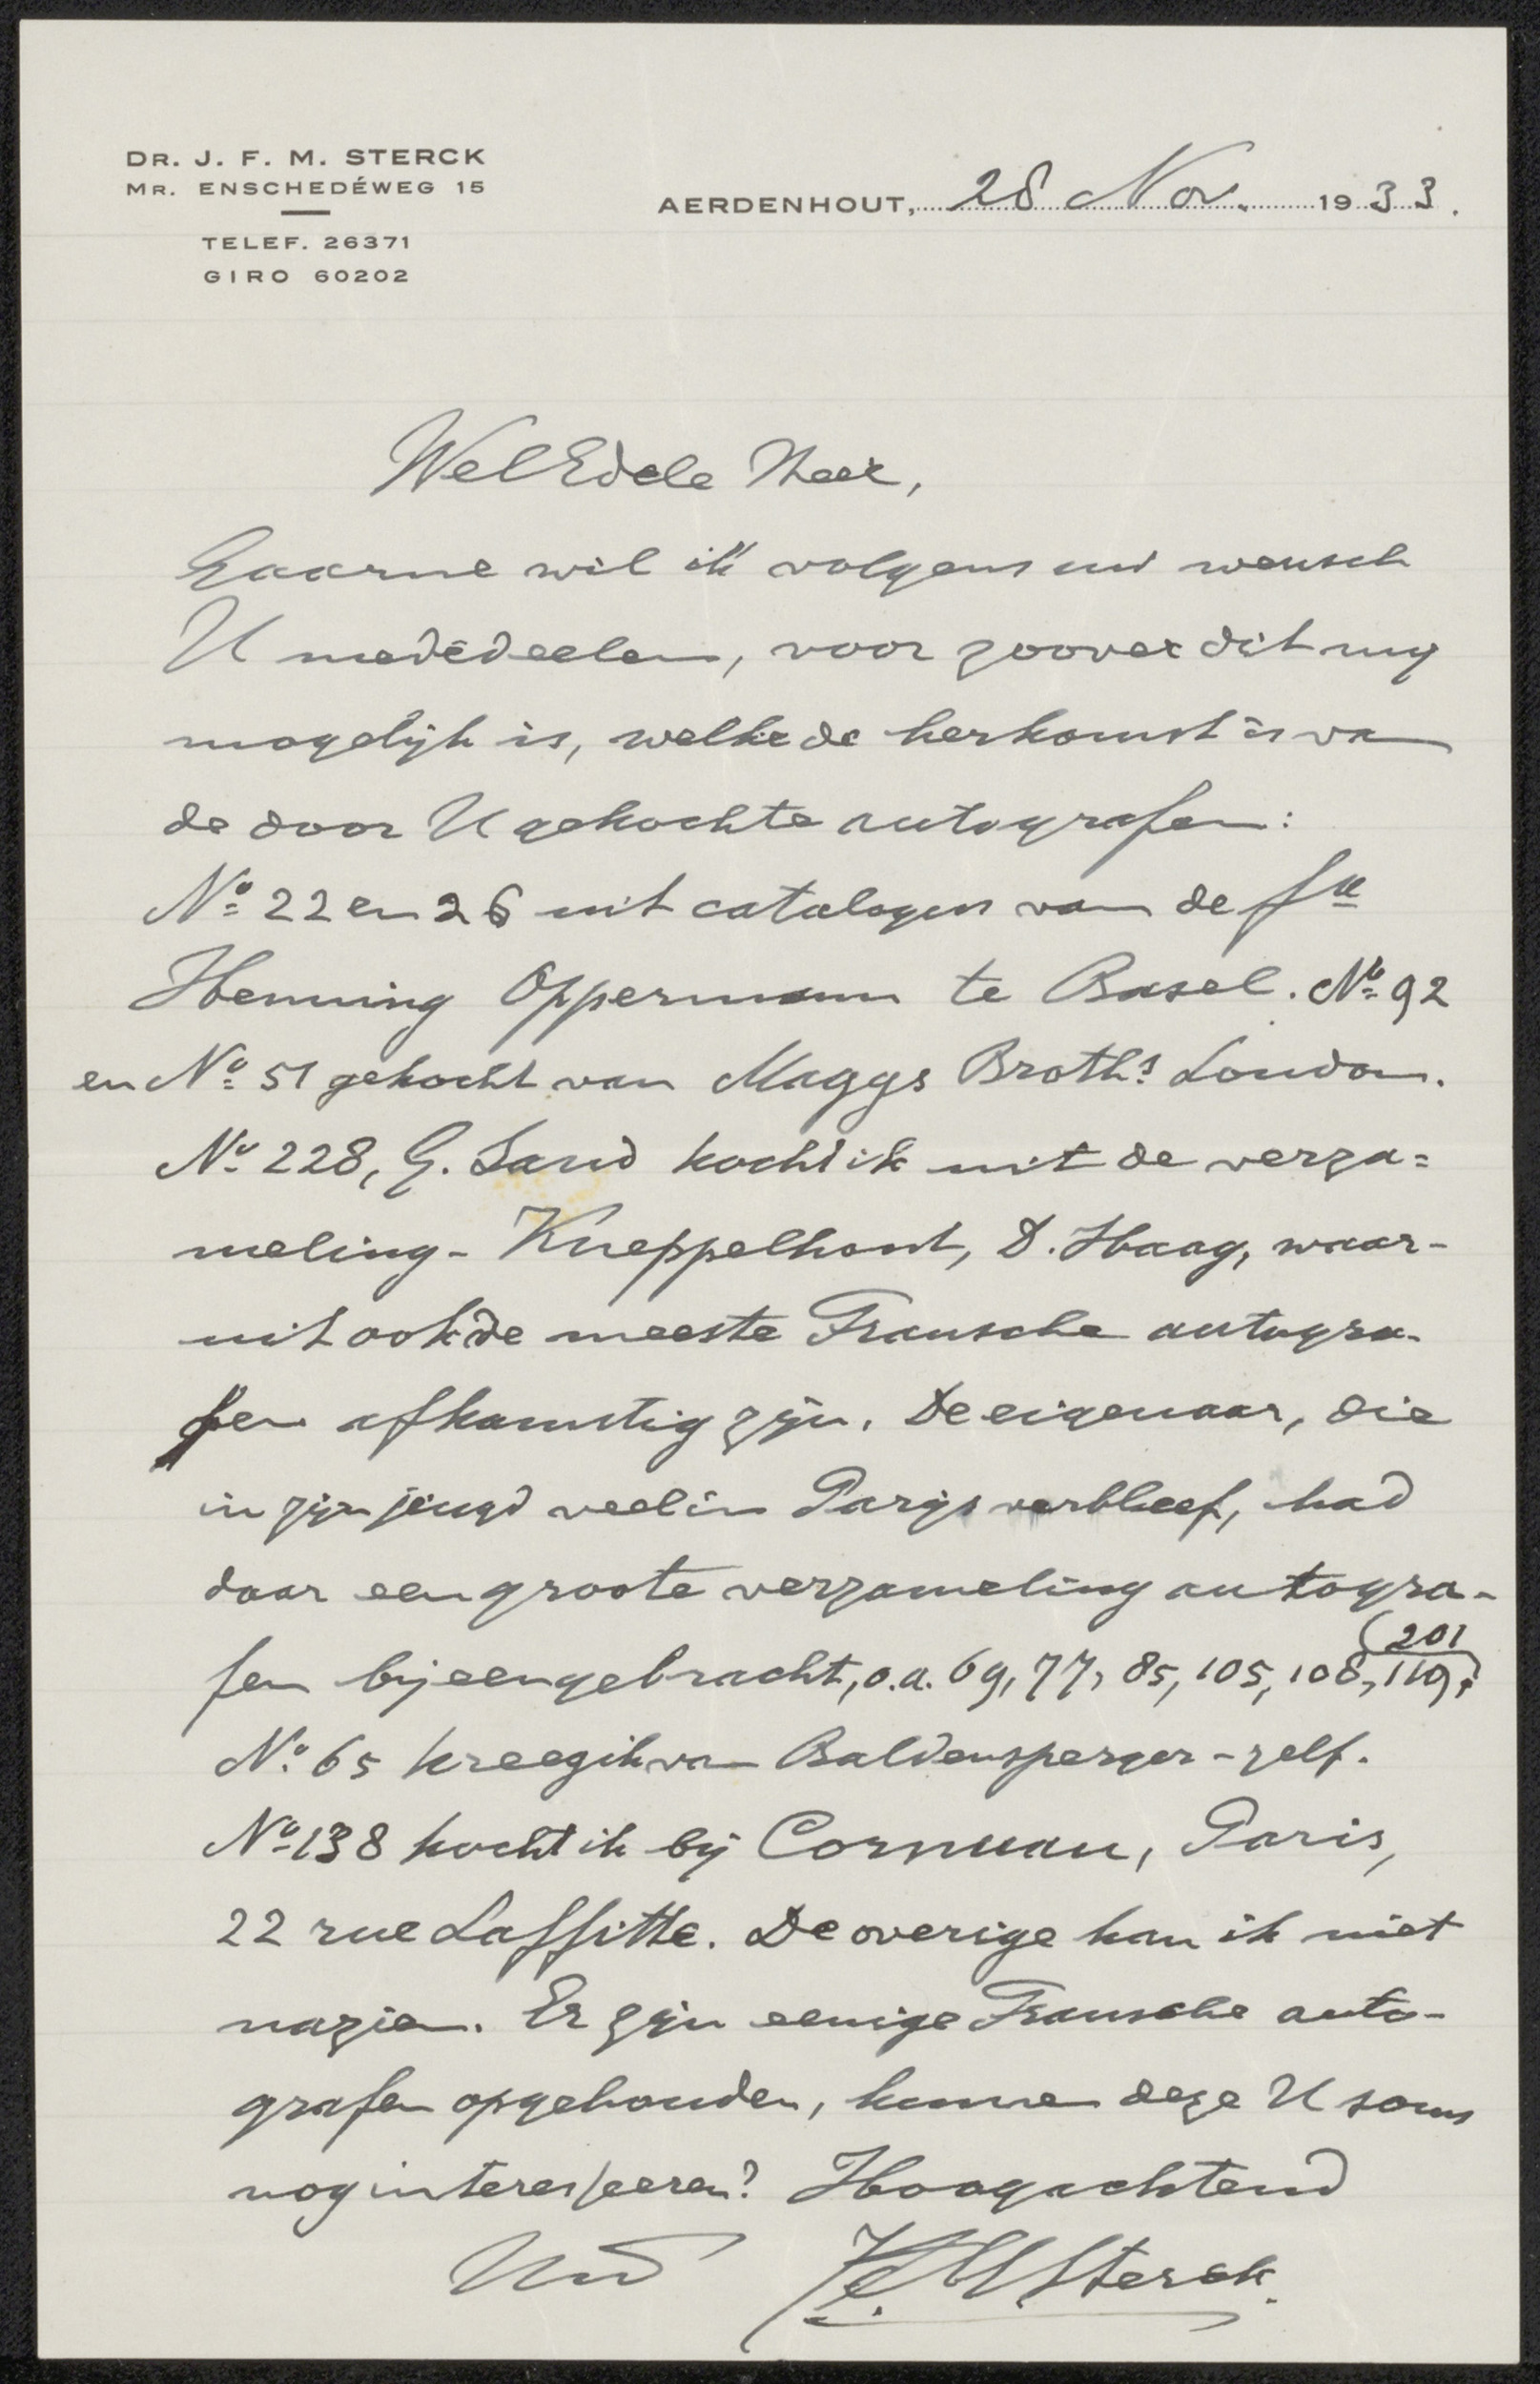 DR. J. F. M. STERCK
MR. ENSCHEDÉWEG 15
TELEF. 26371
GIRO 60202
AERDENHOUT, 28 Nov. 1933.
WelEdele Heer,
Gaarne wil ik volgens uw wensch
U mededeelen, voor zoover dit mij
mogelijk is, welke de herkomst is van
de door U gekochte autografen:
No. 22 en 26 uit catalogus van de fa
Henning Oppermann te Basel. No. 92
en No. 51 gekocht van Maggs Broths London.
No. 228, G. Sand kocht ik uit de verza=
meling- Kneppelhout, D. Haag, waar-
uit ook de meeste Fransche autogra-
fen afkomstig zijn. De eigenaar, die
in zijn jeugd veel in Parijs verbleef, had
daar een groote verzameling autogra-
fen bijeengebracht, o.a. 69, 77, 85, 105, 108, 119, (201)
No. 65 kreeg ik van Baldensperger-zelf.
No. 138 kocht ik bij Cornuau, Paris,
22 rue Laffitte. De overige kan ik niet
nazien. Er zijn eenige Fransche auto-
grafen opgehouden, kunnen deze U soms
nog interesseeren? Hoogachtend
Uw JFMSterck.